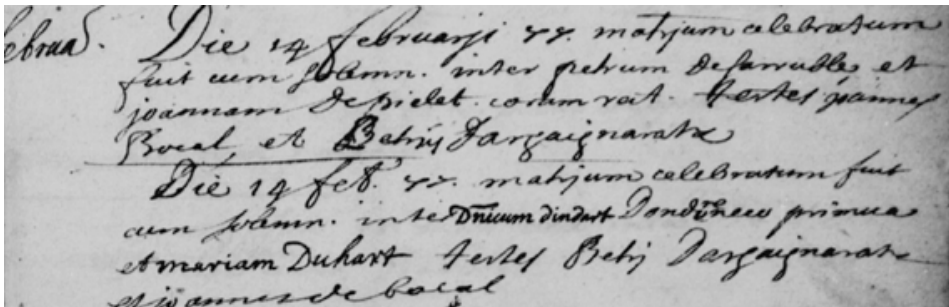 februa. Die 14 februarji 77. matrjum celebratum
fuit cum solemn. inter petrum et
joannam Depielet. coram vat. testes joannes
Bocal et Betrij Dargaignaratz
Die 14 feb. 77. matrjum celebratum fuit
cum solemn. inter Dnicum dindart primua
et mariam Duhart testes Betrij Dargaignaratz
et joannes de bocal